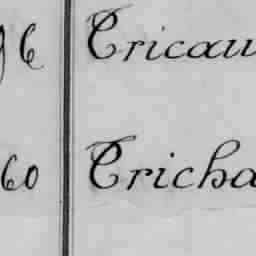 96 Tricau
60 Tricha